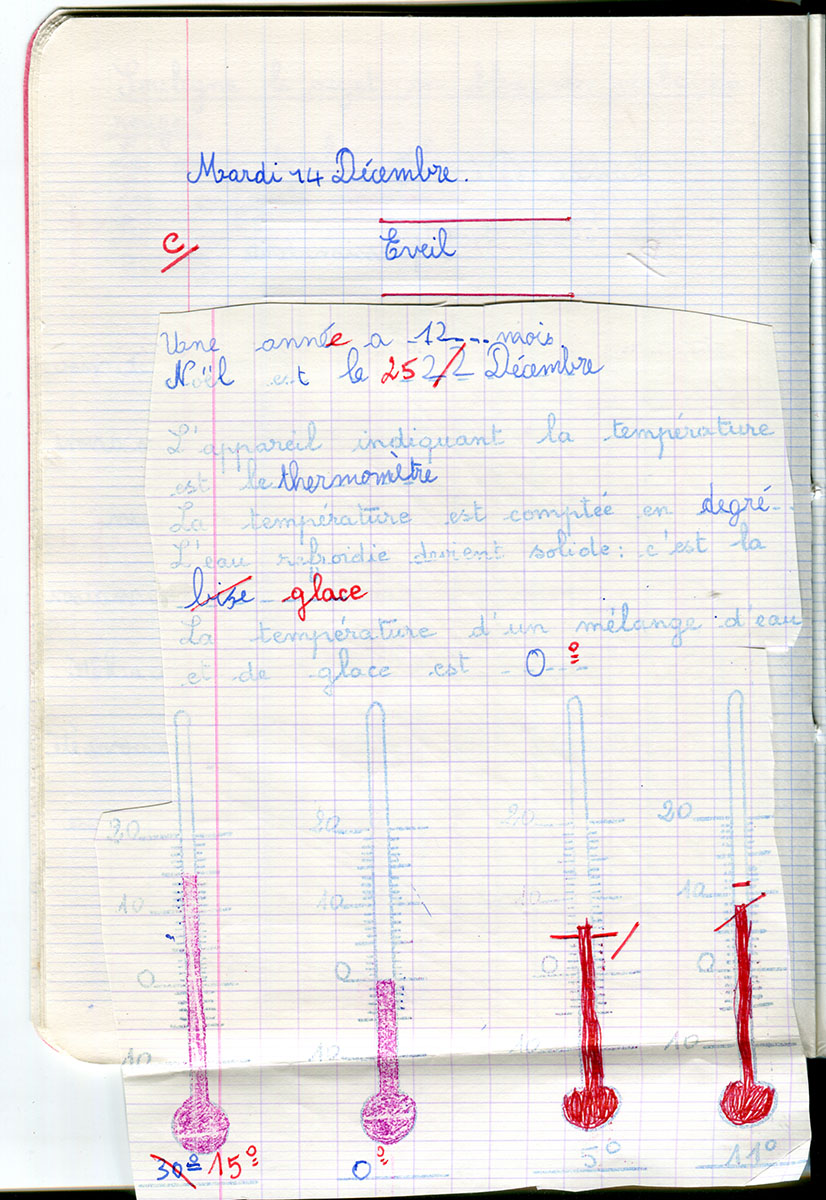 Mardi 14 Décembre.
C Eveil
Une année a 12 mois.
Noël est le 25 22 Décembre
L'appareil indiquant la température
est le thermomètre
La température est comptée en degré
L'eau refroidie devient solide: c'est la
bise glace
La température d'un mélange d'eau
et de glace est 0º
20 20 20 20
10 10 10 10
0 0 0 0
10 10 10 10
30º 15º 0º 5º 11º